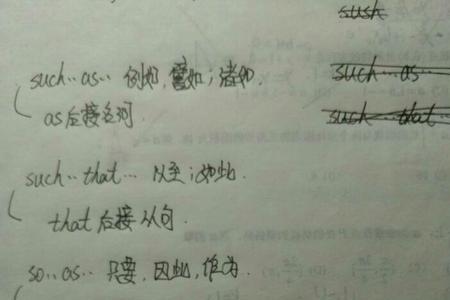 sush
such...as...
such...that...
such...as... 例如,譬如;诸如
as后接名词.
such...that... 以至;如此.
that后接从句.
so...as... 只要,因此,作为.